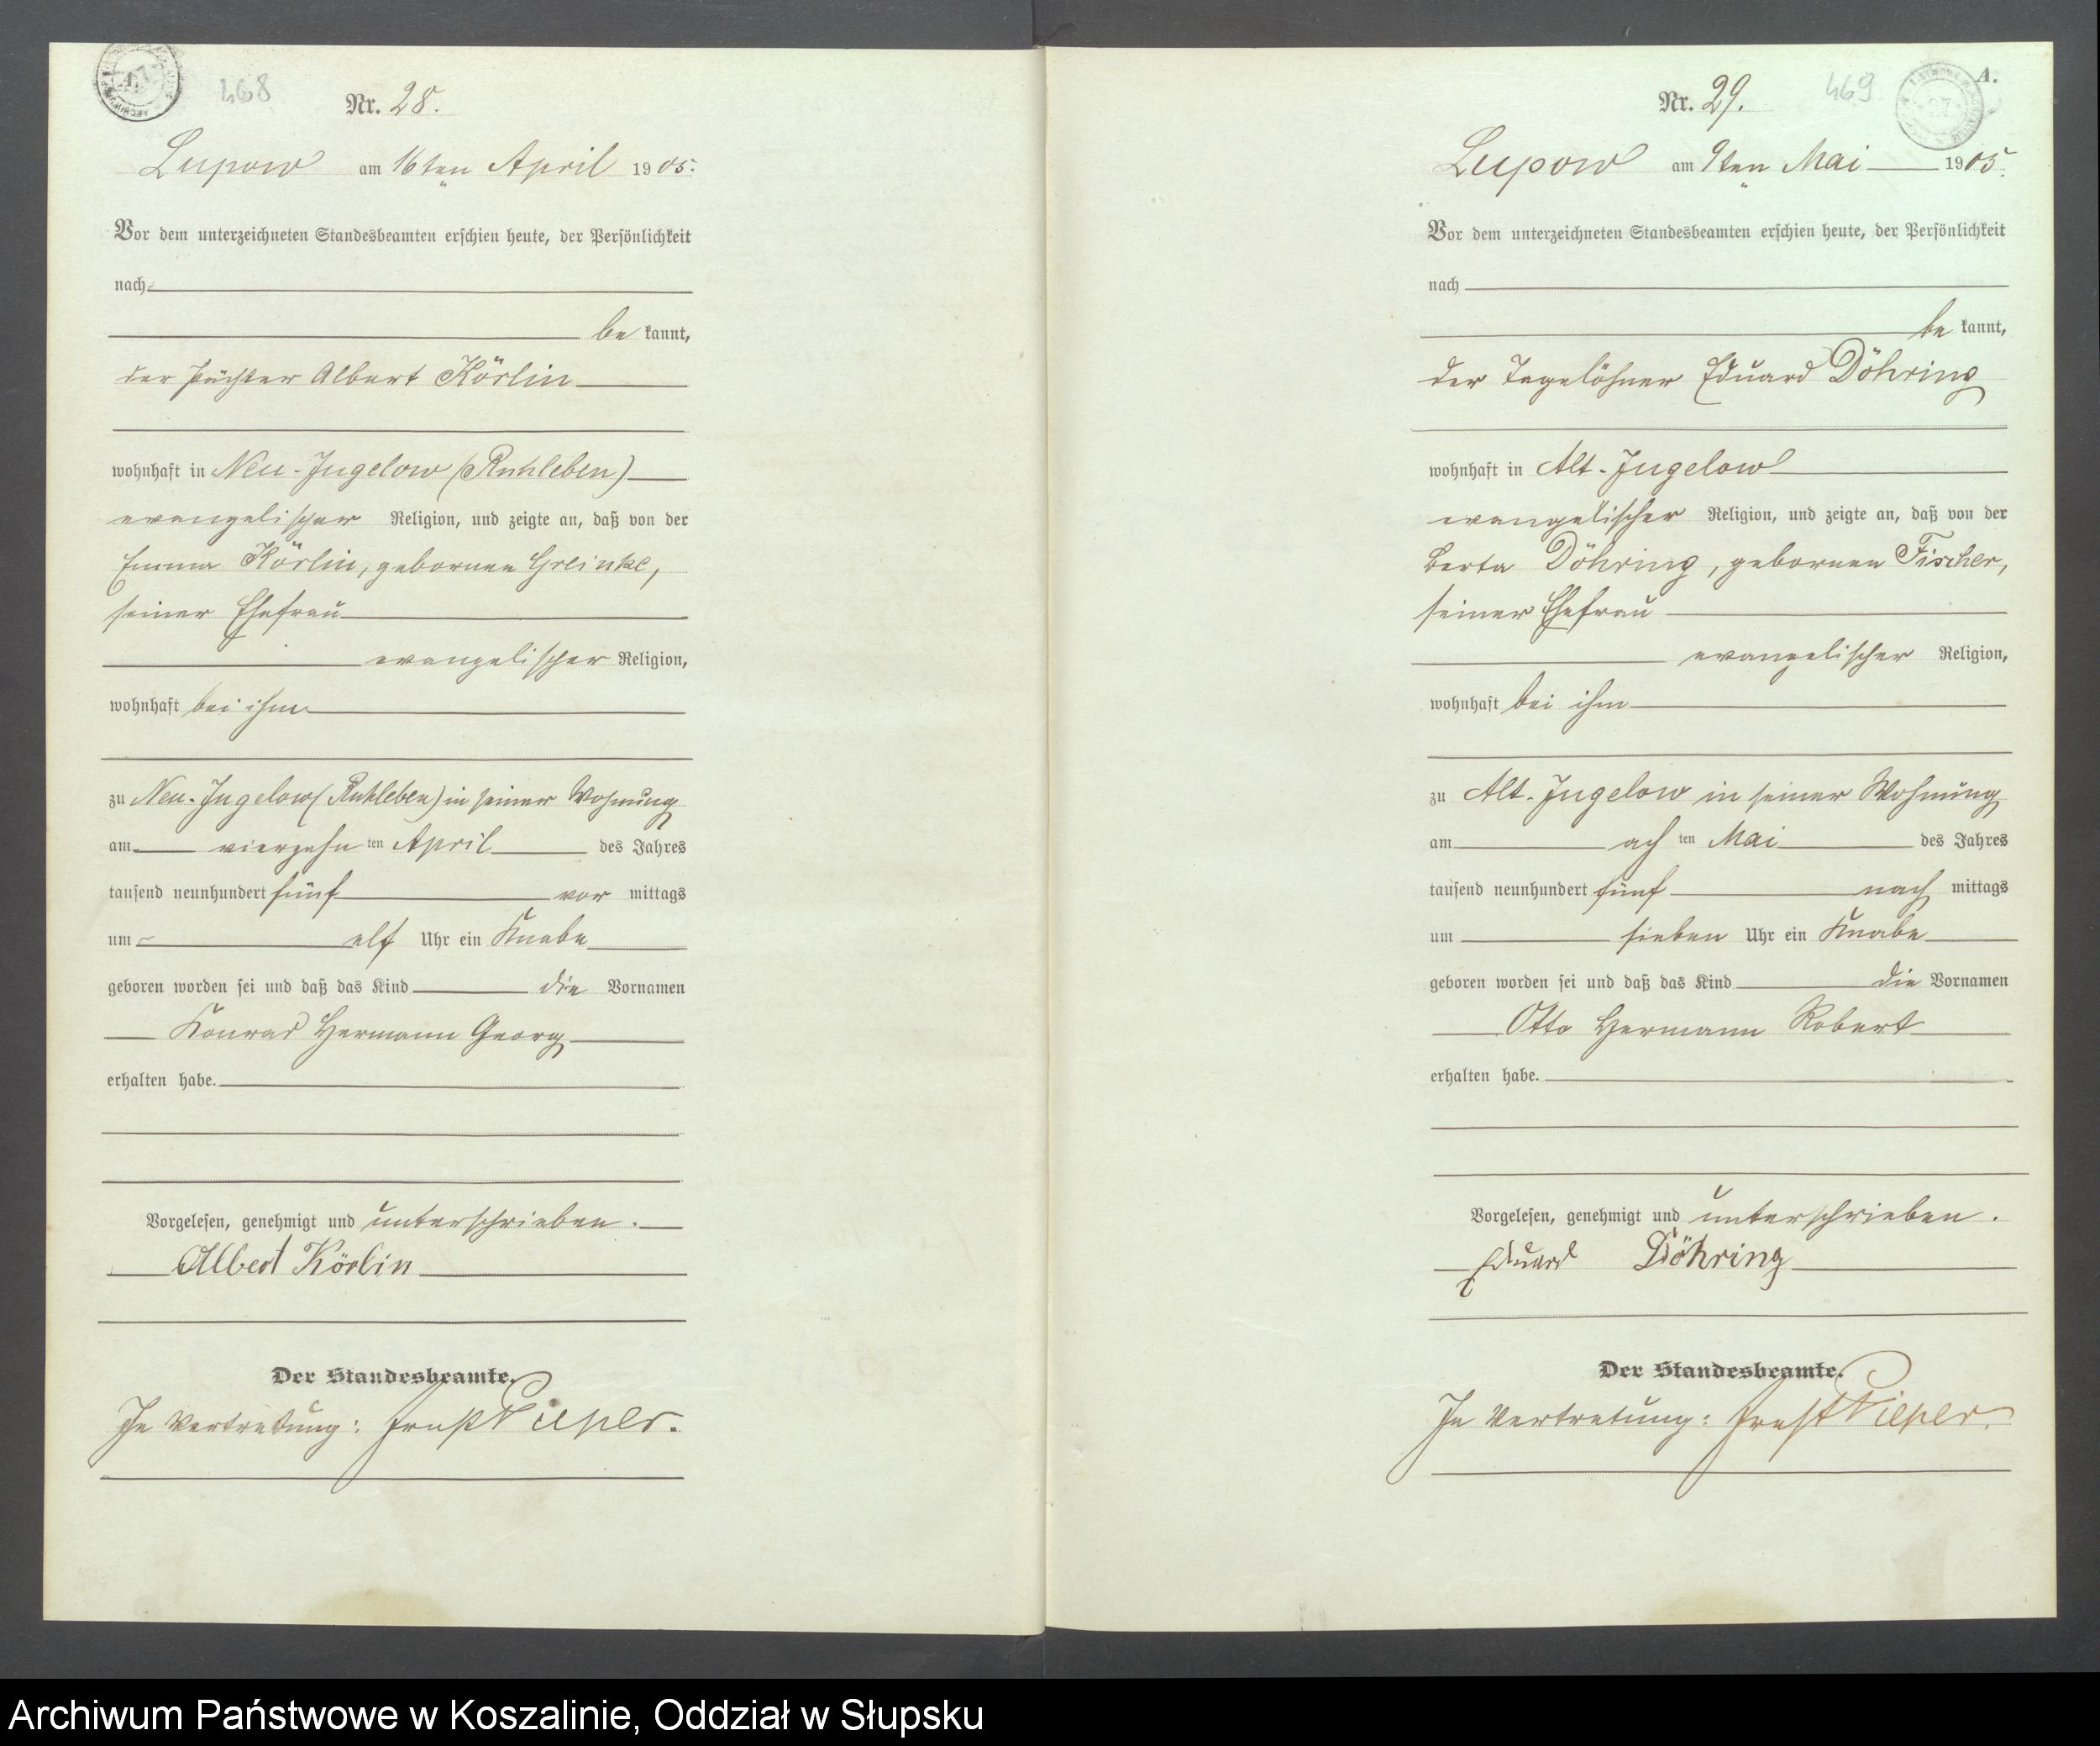 468
Nr. 28.
Lupow am 16ten April 1905.
Vor dem unterzeichneten Standesbeamten erschien heute, der Persönlichkeit
nach
be kannt,
der Pächter Albert Körlin
wohnhaft in Neu-Jugelow (Ruhleben)
evangelischer Religion, und zeigte an, daß von der
Emma Körlin, gebornen Greinke,
seiner Ehefrau
evangelischer Religion,
wohnhaft bei ihm
zu Neu-Jugelow (Ruhleben) in seiner Wohnung
am vierzehn ten April des Jahres
tausend neunhundert fünf vor mittags
um elf Uhr ein Knabe
geboren worden sei und daß das Kind die Vornamen
Konrad Hermann Georg
erhalten habe.
Vorgelesen, genehmigt und unterschrieben.
Albert Körlin
Der Standesbeamte.
In Vertretung: Ernst Pieper.
469
A.
Nr. 29.
Lupow am 9ten Mai 1905.
Vor dem unterzeichneten Standesbeamten erschien heute, der Persönlichkeit
nach
be kannt,
der Tagelöhner Eduard Döhring
wohnhaft in Alt-Jugelow
evangelischer Religion, und zeigte an, daß von der
Berta Döhring, gebornen Fischer,
seiner Ehefrau
evangelischer Religion,
wohnhaft bei ihm
zu Alt-Jugelow in seiner Wohnung
am ach ten Mai des Jahres
tausend neunhundert fünf nach mittags
um sieben Uhr ein Knabe
geboren worden sei und daß das Kind die Vornamen
Otto Hermann Robert
erhalten habe.
Vorgelesen, genehmigt und unterschrieben.
Eduard Döhring
Der Standesbeamte.
In Vertretung: Ernst Pieper.
Archiwum Państwowe w Koszalinie, Oddział w Słupsku